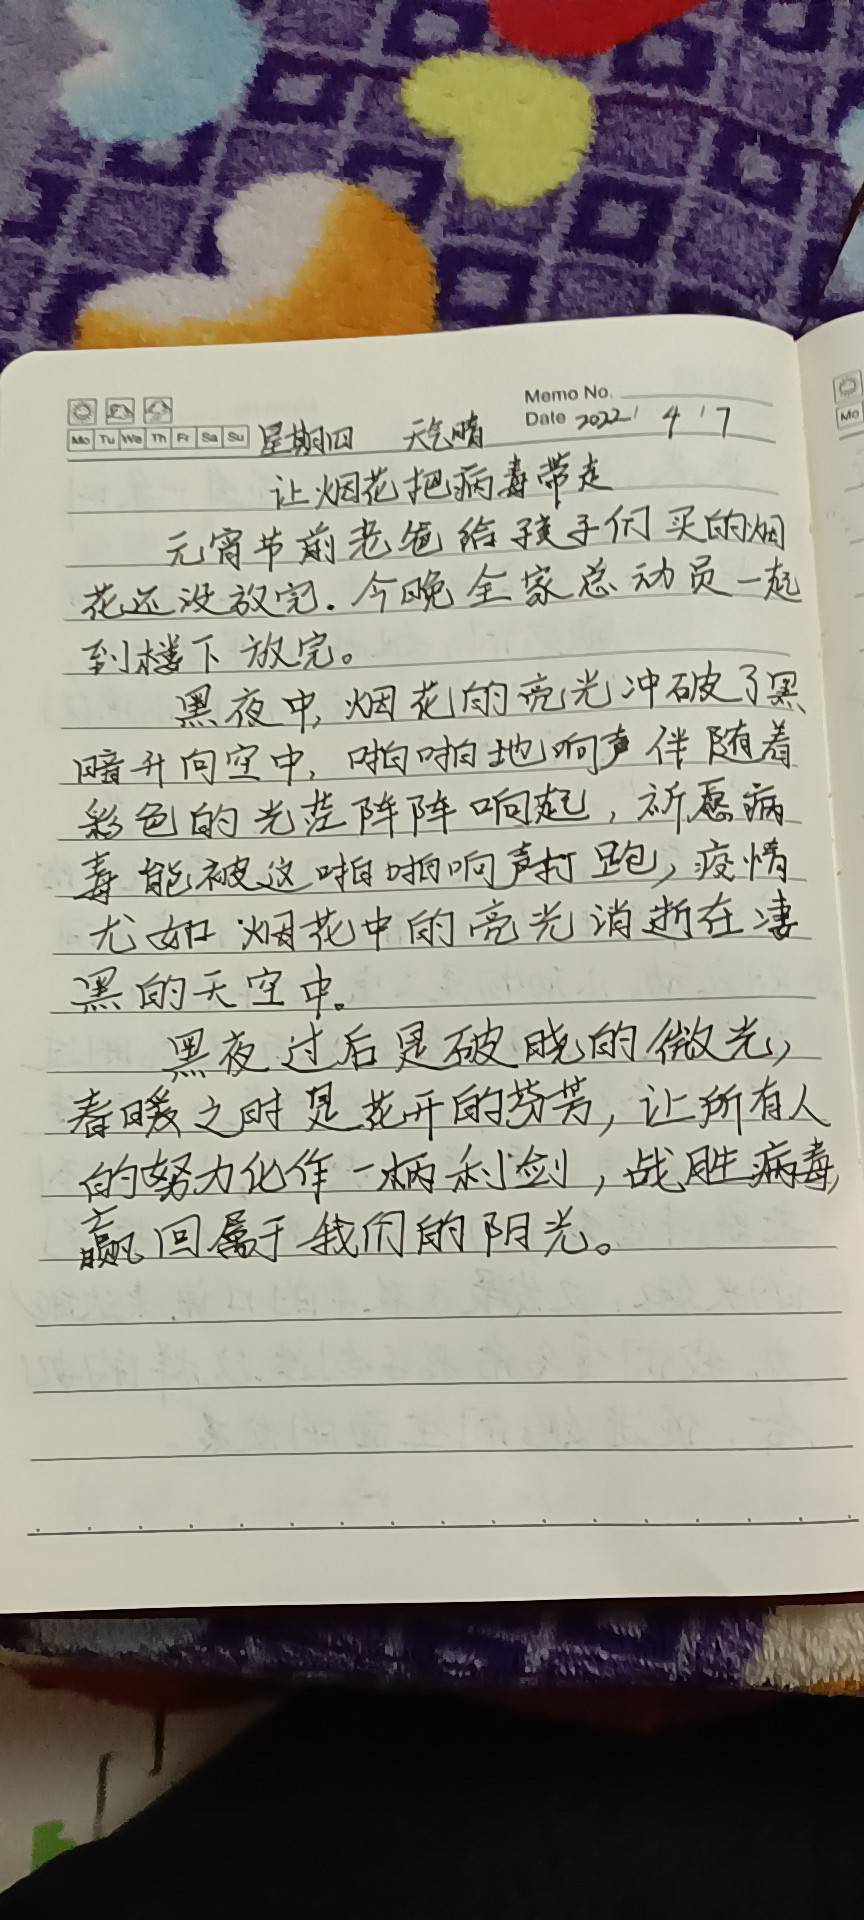 Memo No.
Mo Tu We Th Fr Sa Su 星期四 天气晴 Date 2022 / 4 / 7
Mo
让烟花把病毒带走
元宵节前老爸给孩子们买的烟
花还没放完.今晚全家总动员一起
到楼下放完。
黑夜中,烟花的亮光冲破了黑
暗升向空中,啪啪地响声伴随着
彩色的光茫阵阵响起,祈愿病
毒能被这啪啪响声打跑,疫情
尤如烟花中的亮光消逝在凄
黑的天空中。
黑夜过后是破晓的微光,
春暖之时是花开的芬芳,让所有人
的努力化作一柄利剑,战胜病毒,
赢回属于我们的阳光。